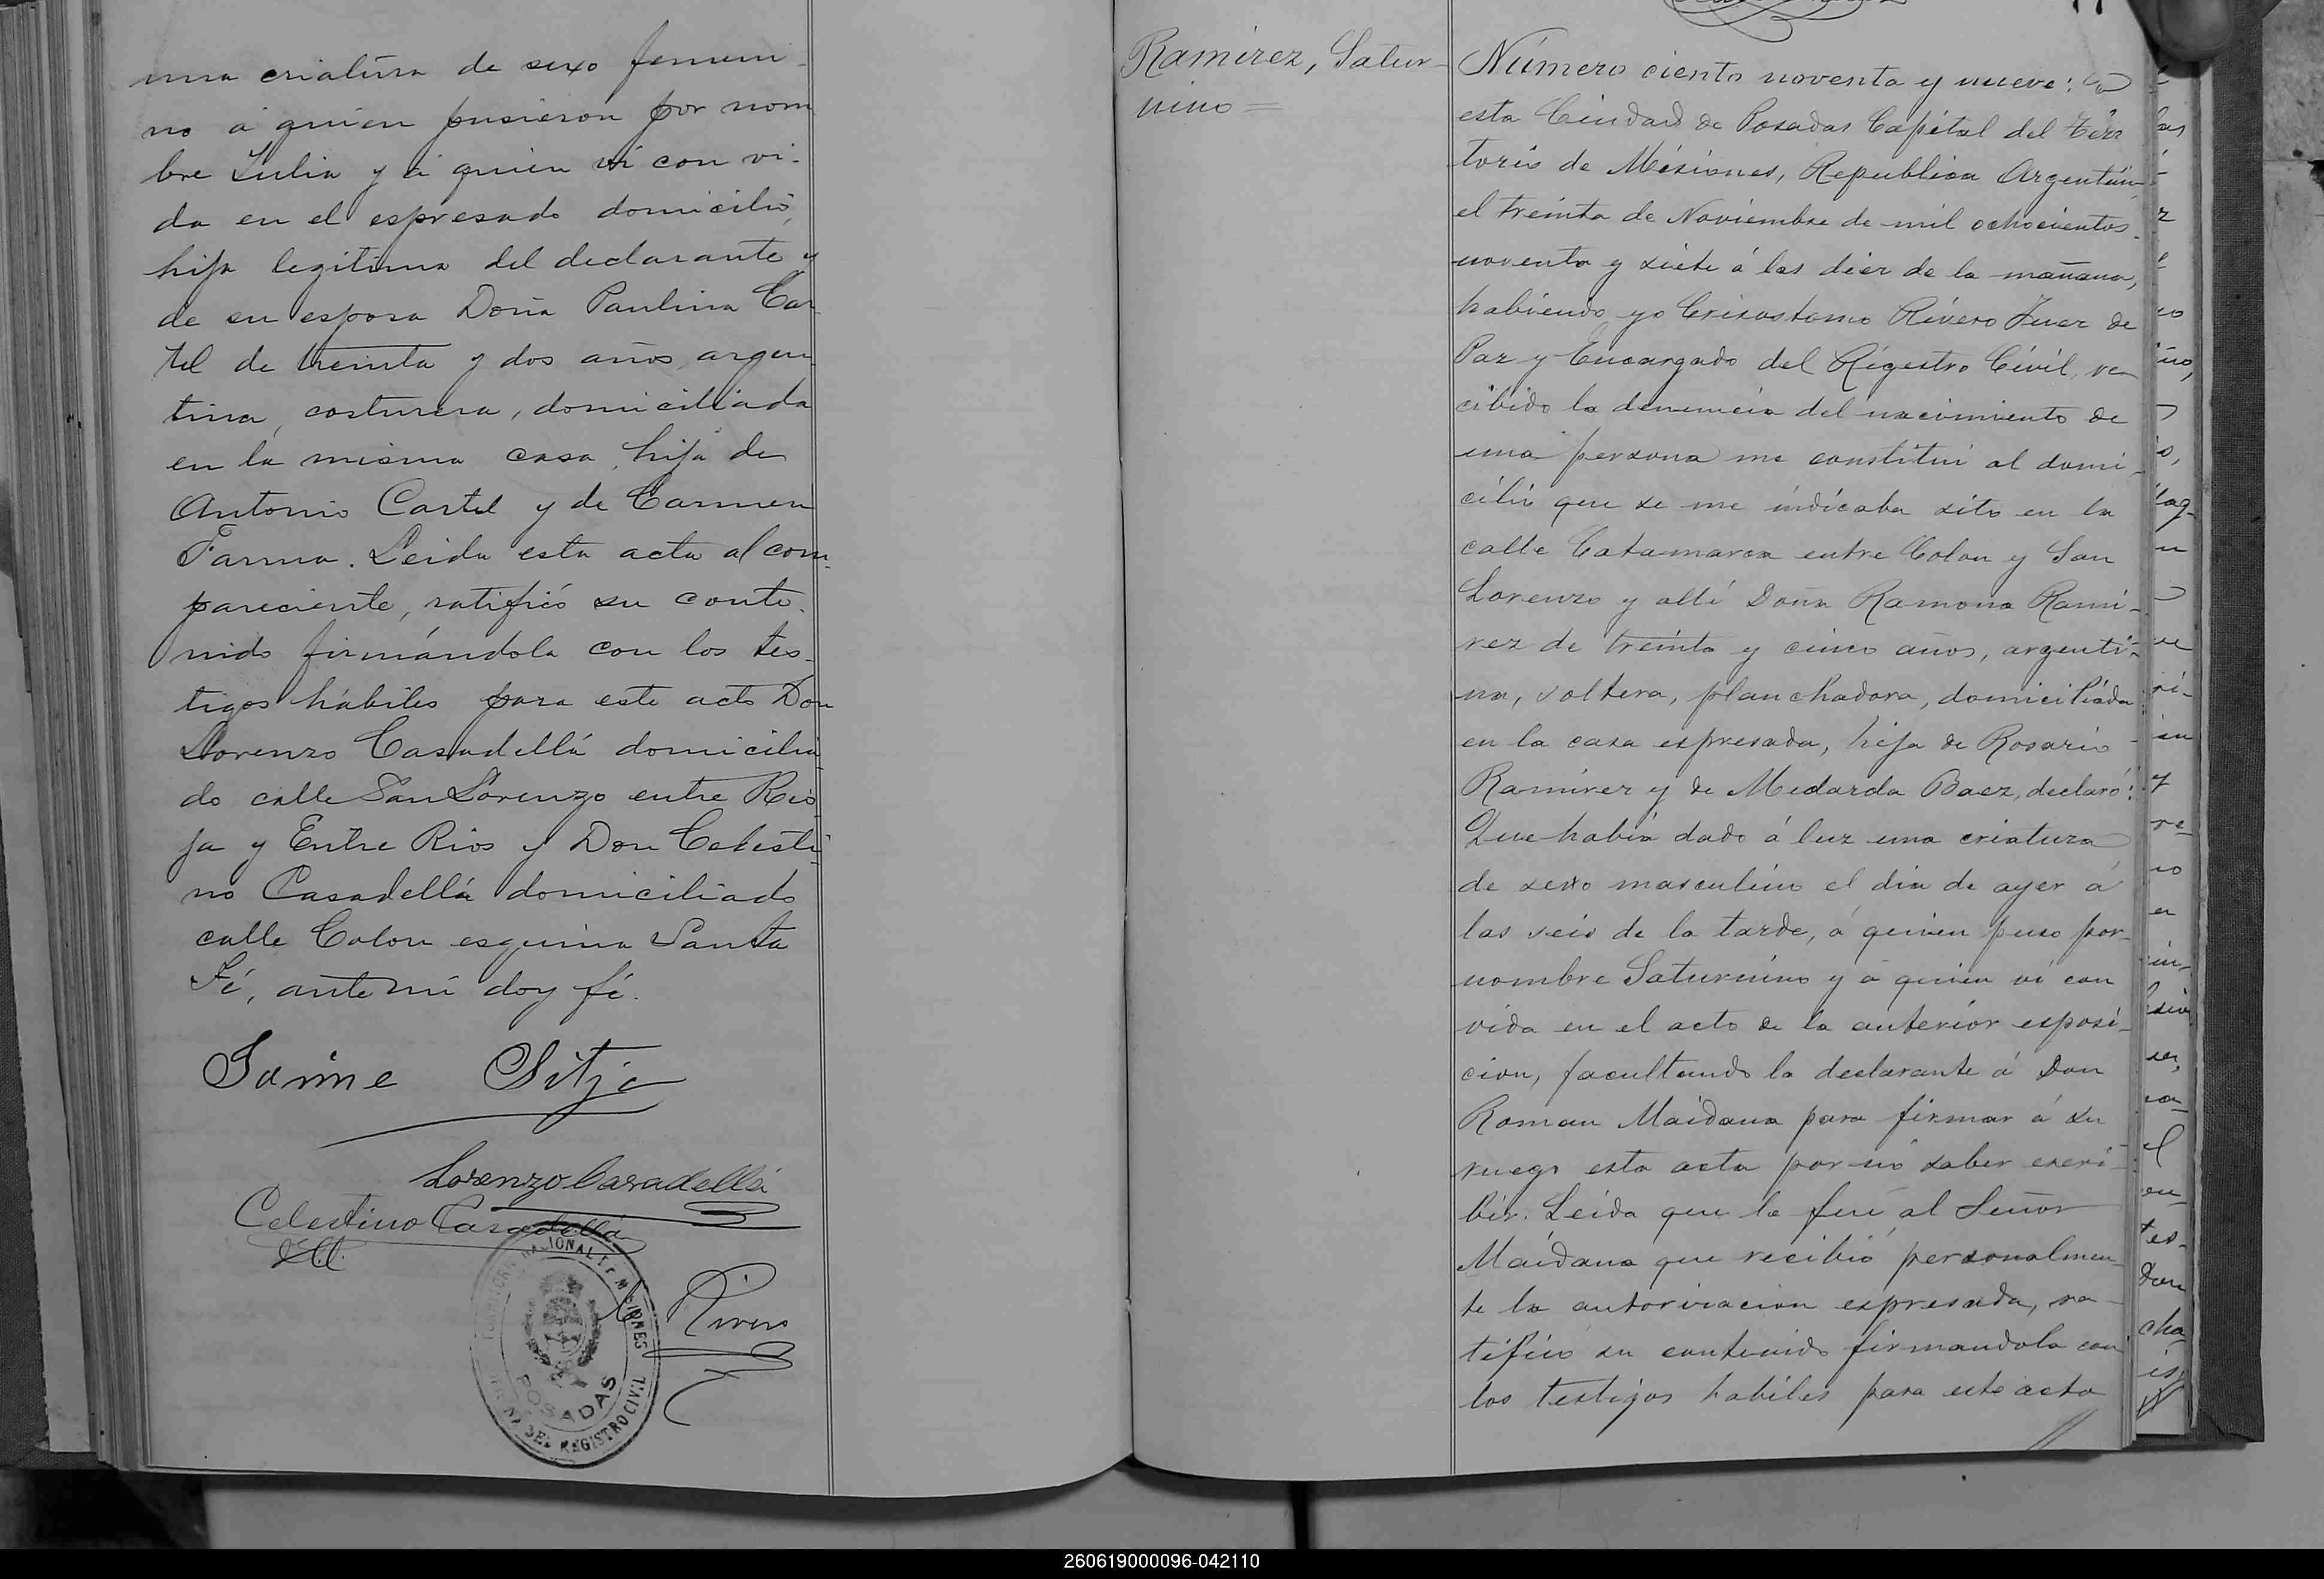 una criatura de sexo femeni-
no á quien pusieron por nom
bre Julia y á quien vi con vi-
da en el espresado domicilio,
hija legitima del declarante y
de su esposa Doña Paulina Car
tel de treinta y dos años, argen
tina, costurera, domiciliada
en la misma casa, hija de
Antonio Cartel y de Carmen
Farma. Leida esta acta al com-
pareciente, ratificó su conte-
nido firmándola con los tes-
tigos hábiles para este acto Don
Lorenzo Casadellá domicilia
do calle San Lorenzo entre Rio
ja y Entre Rios y Don Celesti
no Casadellá domiciliado
calle Colon esquina Santa
Fé, ante mí doy fé.
Jaime Sitja
Lorenzo Casadellá
Celestino Casadellá
Rivero
NACIONAL DE MISIONES
POSADAS
DEL REGISTRO CIVIL
Ramirez, Satur-
nino =
Número ciento noventa y nueve: En
esta Ciudad de Posadas Capital del Terr
torio de Misiones, Republica Argentina
el treinta de Noviembre de mil ochocientos
noventa y siete á las diez de la mañana,
habiendo yo Crisostomo Rivero Juez de
Paz y Encargado del Registro Civil, re
cibido la denuncia del nacimiento de
una persona me constitui al domi-
cilio que se me indicaba sito en la
calle Catamarca entre Colon y San
Lorenzo y allí Doña Ramona Rami-
rez de treinta y cinco años, argenti-
na, soltera, planchadora, domiciliada
en la casa expresada, hija de Rosario
Ramirez y de Medarda Baez, declaró:
Que habia dado á luz una criatura
de sexo masculino el dia de ayer á
las seis de la tarde, á quien puso por
nombre Saturnino y á quien vi con
vida en el acto de la anterior esposi-
cion, facultando la declarante á Don
Roman Maidana para firmar á su
ruego esta acta por nó saber escri-
bir. Leida que le fué al Señor
Maidana que recibió personalmen-
te la autorizacion expresada, ra-
tificó su contenido firmandola con
los testigos habiles para este acto
260619000096-042110